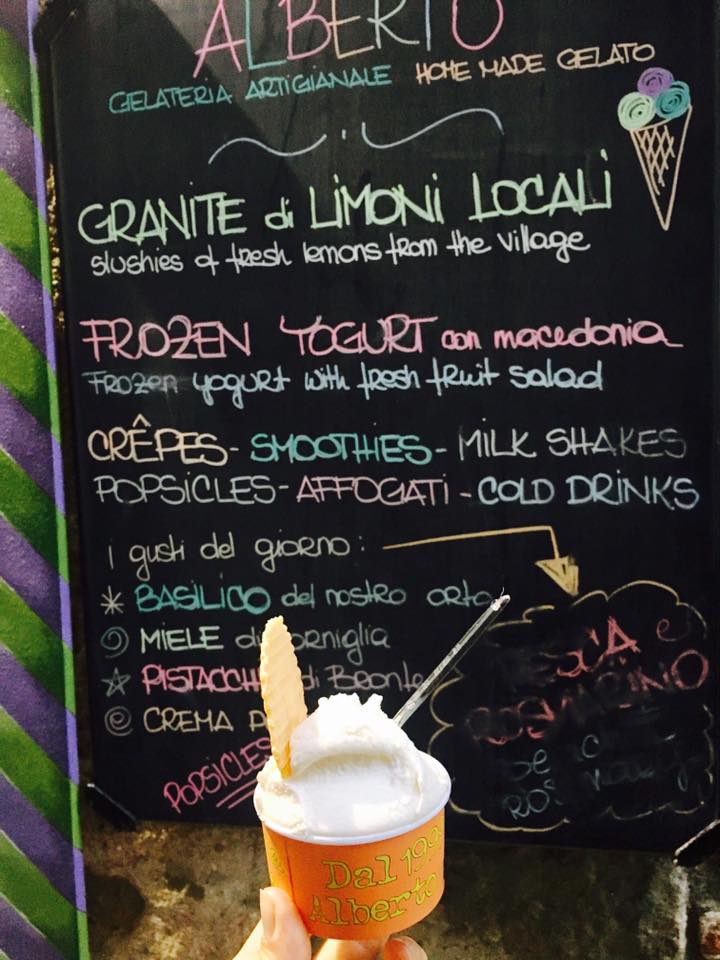 ALBERTO
GELATERIA ARTIGIANALE HOME MADE GELATO
GRANITE di LIMONI LOCALI
slushies of fresh lemons from the village
FROZEN YOGURT con macedonia
Frozen yogurt with fresh fruit salad
CRÊPES - SMOOTHIES - MILK SHAKES
POPSICLES - AFFOGATI - COLD DRINKS
i gusti del giorno:
BASILICO del nostro orto
MIELE di
PISTACCHI di Bronte
CREMA
POPSICLES
Dal
Alberto